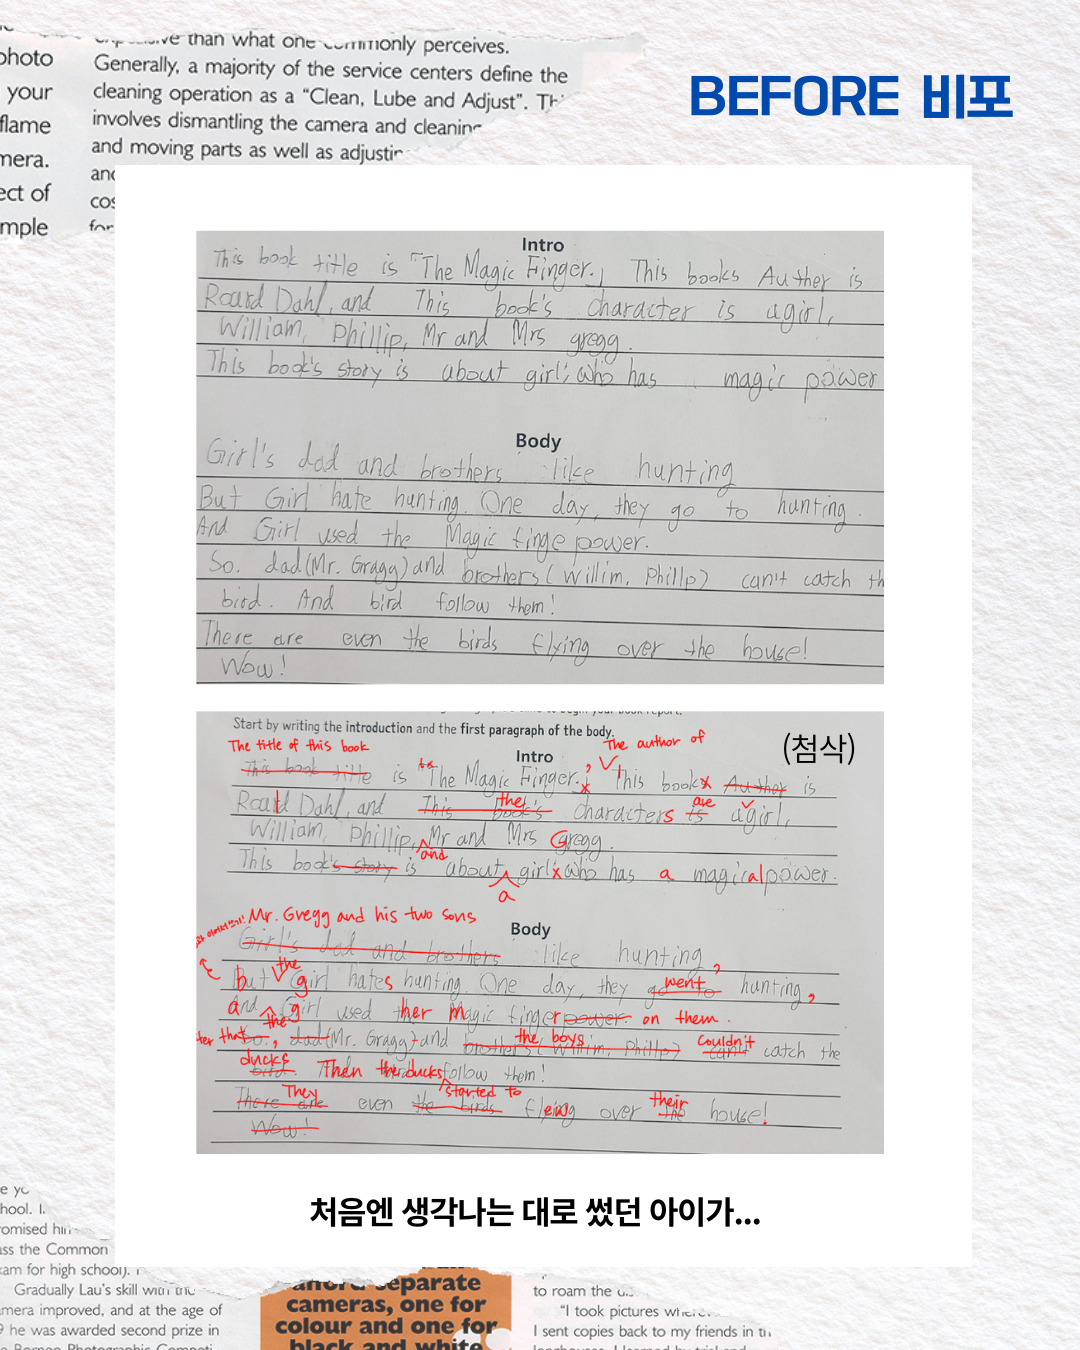 photo
your
flame
mera.
ect of
mple
than what one commonly perceives.
Generally, a majority of the service centers define the
cleaning operation as a “Clean, Lube and Adjust”.
involves dismantling the camera and cleaning
and moving parts as well as adjustin
and
cos
for
BEFORE 비포
Intro
This book title is 「The Magic Finger.」 This books Auther is
Roard Dahl, and This book's character is agirl,
William, Phillip, Mr and Mrs gregg.
This book's story is about girl; who has magic power
Body
Girl's dad and brothers like hunting
But Girl hate hunting. One day, they go to hunting.
And Girl used the Magic finge power.
So. dad(Mr. Gragg) and brothers( Willim, Phillp) can't catch th
bird. And bird follow them!
There are even the birds flying over the house!
Wow!
Start by writing the introduction and the first paragraph of the body.
(첨삭)
The title of this book
The author of
Intro
This book title is "The Magic Finger. , This book Auther is
Roald Dahl, and This book's the characters is are a girl,
William, Phillip, and Mr and Mrs Gregg.
This book's story is about a girl who has a magical power.
Mr. Gregg and his two sons
Body
Girl's dad and brothers like hunting,
but the girl hates hunting. One day, they go to went hunting,
and the girl used her magic finger power on them.
So, dad(Mr. Gragg) and brothers( Willim, Phillp) the boys can't couldn't catch the
bird ducks. Then the ducks follow them!
There are They even the birds started to flewing over the their house!
Wow!
처음엔 생각나는 대로 썼던 아이가...
hool. I
omised him
ss the Common
am for high school).
Gradually Lau's skill with the
mera improved, and at the age of
he was awarded second prize in
afford separate
cameras, one for
colour and one for
black and white
to roam the
“I took pictures where
I sent copies back to my friends in